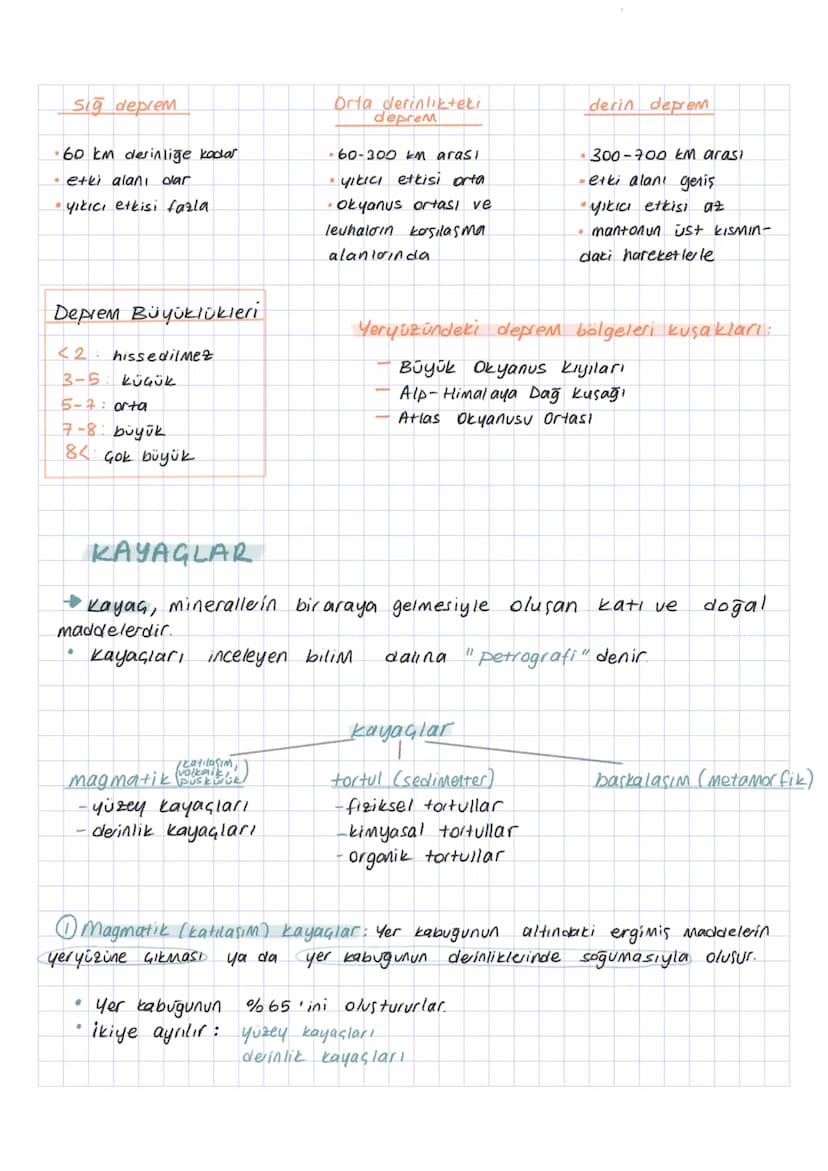 sığ deprem
• 60 km derinliğe kadar
• etki alanı dar
• yıkıcı etkisi fazla
Orta derinlikteki
deprem
• 60-300 km arası
• yıkıcı etkisi orta
• okyanus ortası ve
levhaların karşılaşma
alanlarında
derin deprem
• 300-700 km arası
• etki alanı geniş
• yıkıcı etkisi az
• mantonun üst kısmın-
daki hareketlerle
Deprem Büyüklükleri
<2 : hissedilmez
3-5 : küçük
5-7 : orta
7-8 : büyük
8< : çok büyük
Yeryüzündeki deprem bölgeleri kuşakları:
— Büyük Okyanus Kıyıları
— Alp-Himalaya Dağ Kuşağı
— Atlas Okyanusu Ortası
KAYAÇLAR
→ Kayaç, minerallerin bir araya gelmesiyle oluşan katı ve doğal
maddelerdir.
• Kayaçları inceleyen bilim dalına "petrografi" denir.
kayaçlar
magmatik (katılaşım, volkanik, püskürük)
- yüzey kayaçları
- derinlik kayaçları
tortul (sedimenter)
- fiziksel tortullar
- kimyasal tortullar
- organik tortullar
başkalaşım (metamorfik)
① Magmatik (katılaşım) kayaçlar: Yer kabuğunun altındaki ergimiş maddelerin
yeryüzüne çıkması ya da yer kabuğunun derinliklerinde soğumasıyla oluşur.
• Yer kabuğunun %65'ini oluştururlar.
• İkiye ayrılır: yüzey kayaçları
derinlik kayaçları